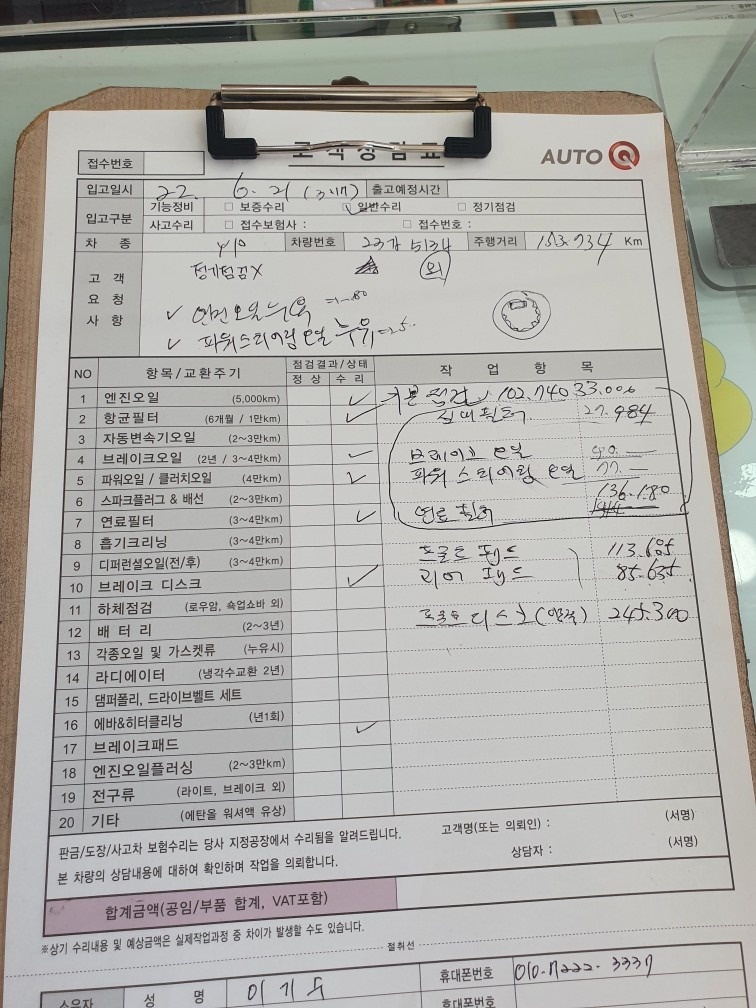 고객상담표
AUTO Q
접수번호
입고일시 22. 6. 21 출고예정시간
입고구분 기능정비 □ 보증수리 □ 일반수리 □ 정기점검
사고수리 □ 접수보험사 : □ 접수번호 :
차 종 차량번호 5134 주행거리 153.734 Km
고객 요청 사항
정기점검X 외
✓ 엔진오일누유
✓ 파워스티어링 오일 누유
NO 항목/교환주기 점검결과/상태 작 업 항 목
정 상 수 리
1 엔진오일 (5,000km) ✓ 기본점검 102.740 33.000
2 항균필터 (6개월 / 1만km) ✓ 실내필터 27.984
3 자동변속기오일 (2~3만km)
4 브레이크오일 (2년 / 3~4만km) ✓ 브레이크 오일
5 파워오일 / 클러치오일 (4만km) ✓ 파워 스티어링 오일 77.—
6 스파크플러그 & 배선 (2~3만km) 136.180
7 연료필터 (3~4만km) ✓ 연료 필터
8 흡기크리닝 (3~4만km)
9 디퍼런셜오일(전/후) (3~4만km) 프론트 패드 113.685
10 브레이크 디스크 ✓ 리어 패드 85.635
11 하체점검 (로우암, 쇽업쇼바 외)
12 배 터 리 (2~3년) 프론트 디스크 (양쪽) 245.300
13 각종오일 및 가스켓류 (누유시)
14 라디에이터 (냉각수교환 2년)
15 댐퍼폴리, 드라이브벨트 세트
16 에바&히터클리닝 (년1회)
17 브레이크패드 ✓
18 엔진오일플러싱 (2~3만km)
19 전구류 (라이트, 브레이크 외)
20 기타 (에탄올 워셔액 유상)
판금/도장/사고차 보험수리는 당사 지정공장에서 수리됨을 알려드립니다.
본 차량의 상담내용에 대하여 확인하며 작업을 의뢰합니다.
고객명(또는 의뢰인) : (서명)
상담자 : (서명)
합계금액(공임/부품 합계, VAT포함)
※상기 수리내용 및 예상금액은 실제작업과정 중 차이가 발생할 수도 있습니다.
절취선
소유자 성 명 휴대폰번호 010-7222-3337
휴대폰번호